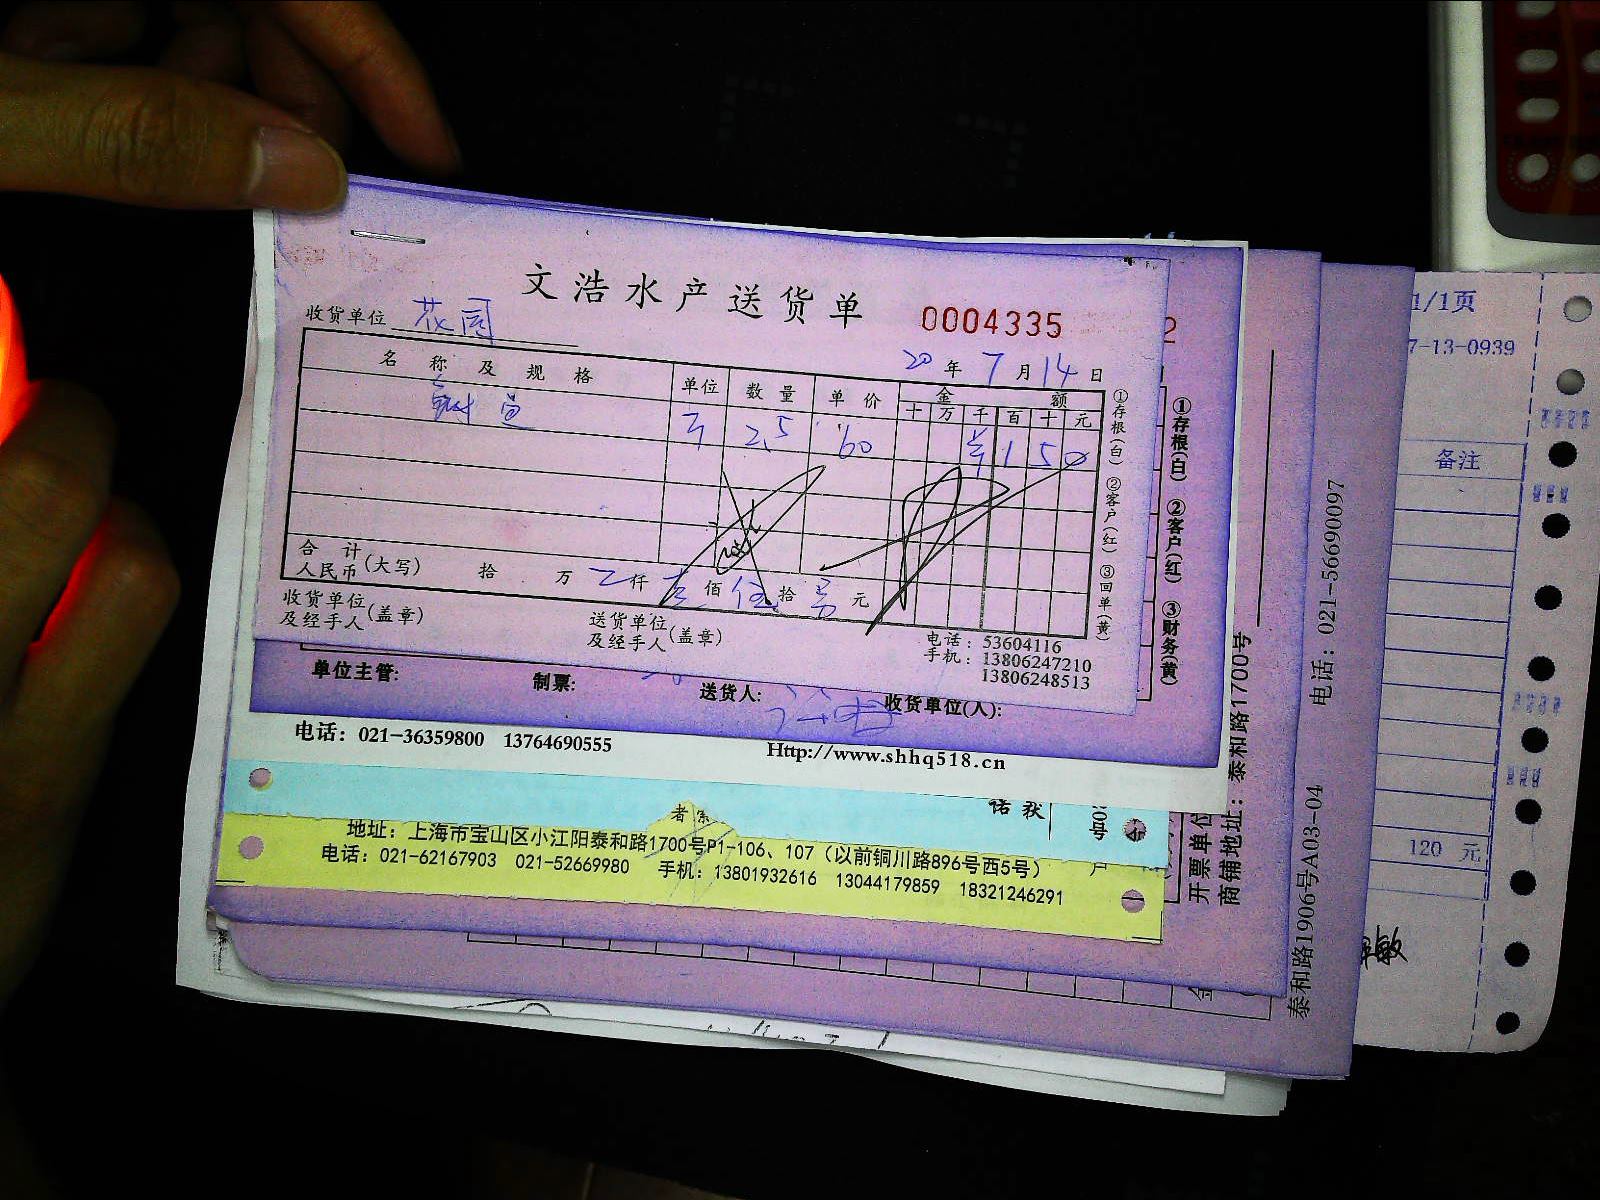 文浩水产送货单
0004335
收货单位 花园
20 年 7 月 14 日
名称及规格 单位 数量 单价 金额
十 万 千 百 十 元
2.5 60 ¥ 1 5 0
合计
人民币(大写) 拾 万 仟 佰 伍 拾 元
收货单位
及经手人(盖章)
送货单位
及经手人(盖章)
电话：53604116
手机：13806247210
13806248513
①存根(白) ②客户(红) ③回单(黄)
2
①存根(白) ②客户(红) ③财务(黄)
单位主管: 制票: 送货人: 收货单位(人):
电话：021-36359800 13764690555
Http://www.shhq518.cn
诺 获
地址：上海市宝山区小江阳泰和路1700号P1-106、107（以前铜川路896号西5号）
电话：021-62167903 021-52669980 手机：13801932616 13044179859 18321246291
开票单位
商铺地址：泰和路1700号
泰和路1906号A03-04
电话：021-56690097
1/1页
7-13-0939
备注
120 元